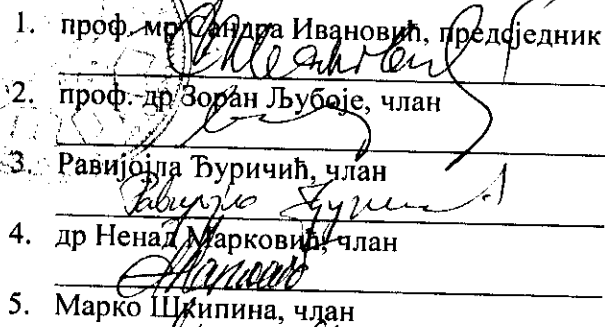 1. проф. мр Сандра Ивановић, предсједник
2. проф. др Зоран Љубоје, члан
3. Равијојла Ђуричић, члан
4. др Ненад Марковић, члан
5. Марко Шкипина, члан